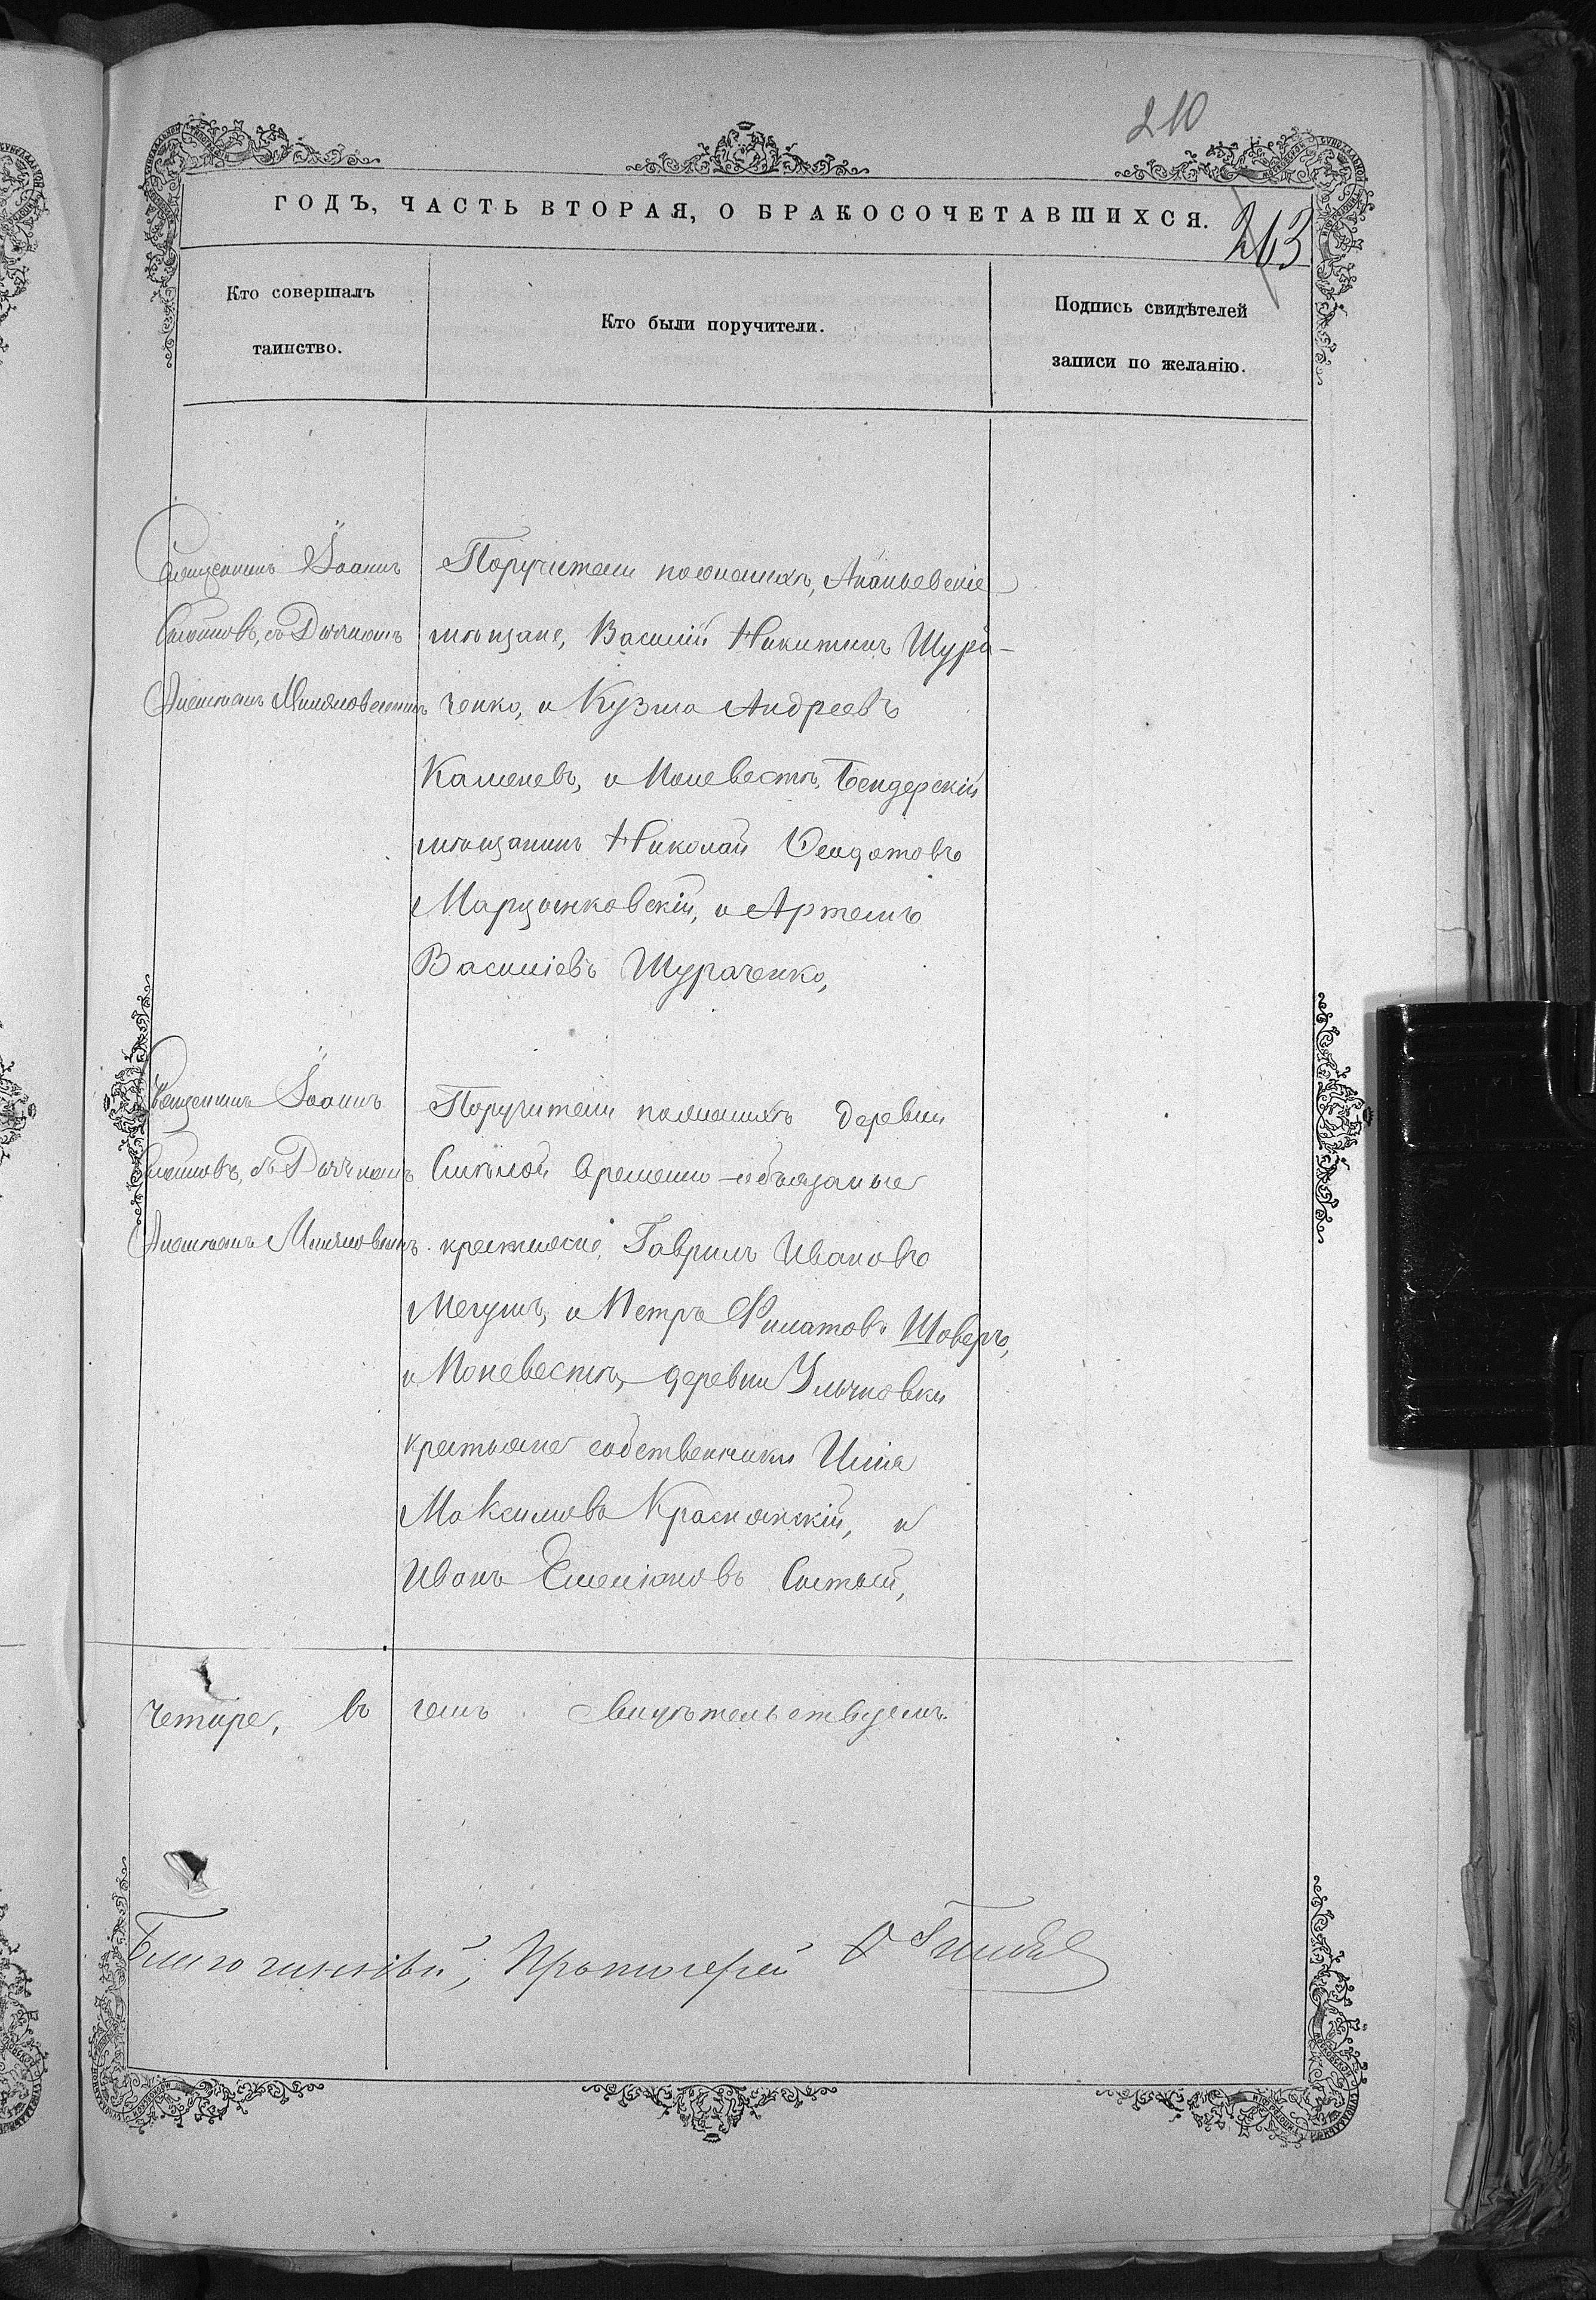 210
ГОДЪ, ЧАСТЬ ВТОРАЯ, О БРАКОСОЧЕТАВШИХСЯ.
263
Кто совершалъ
таинство.
Кто были поручители.
Подпись свидѣтелей
записи по желанію.
Священникъ Іоаннъ
съ Дьячкомъ
Поручители по женихѣ, Ананьевскіе
мѣщане, Василій Никитинъ Шура-
ченко, и Кузма Андреевъ
Каменевъ, и По невестѣ, Бендерскій
мѣщанинъ Николай Феодотовъ
Марцынковскій, и Артемъ
Василіевъ Шураченко,
Священникъ Іоаннъ
съ Дьячкомъ
Поручители по женихѣ деревни
временно-обязаные
крестьяне, Гаврилъ Ивановъ
и Петръ Филатовъ Шоверъ,
и По невестѣ, деревни Ульяновки
крестьяне собственники Илія
Максимовъ Краснянскій, и
Иванъ Емеліановъ Сытый,
Четыре, въ чемъ свидѣтельствуемъ.
Благочинный, Протоіерей